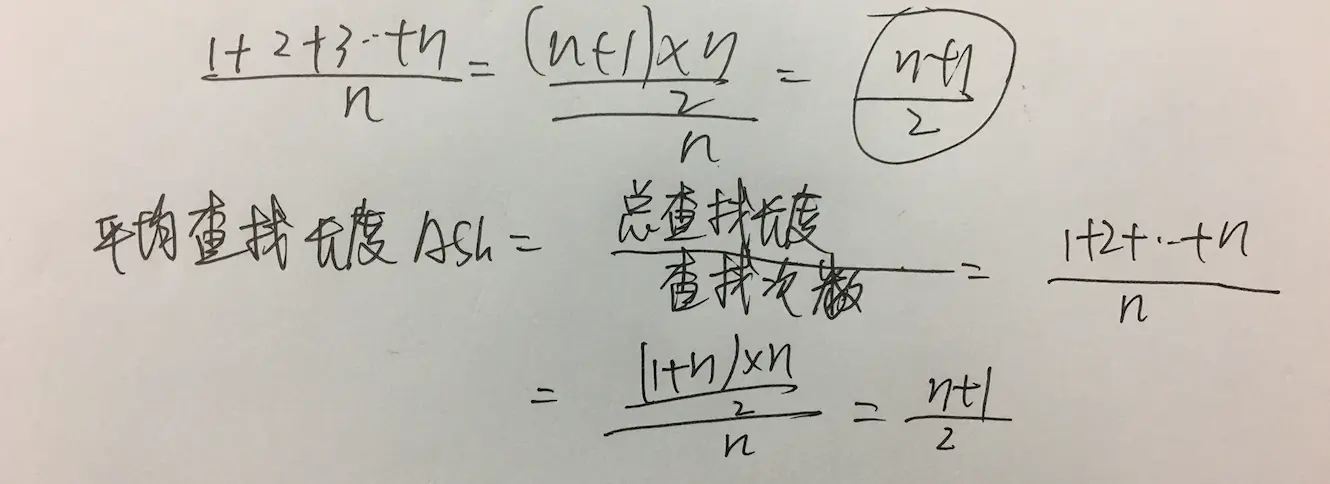 (1+2+3…+n)/n = ((n+1)×n/2)/n = (n+1)/2
平均查找长度 ASL = 总查找长度/查找次数 = (1+2+…+n)/n
= ((1+n)×n/2)/n = (n+1)/2